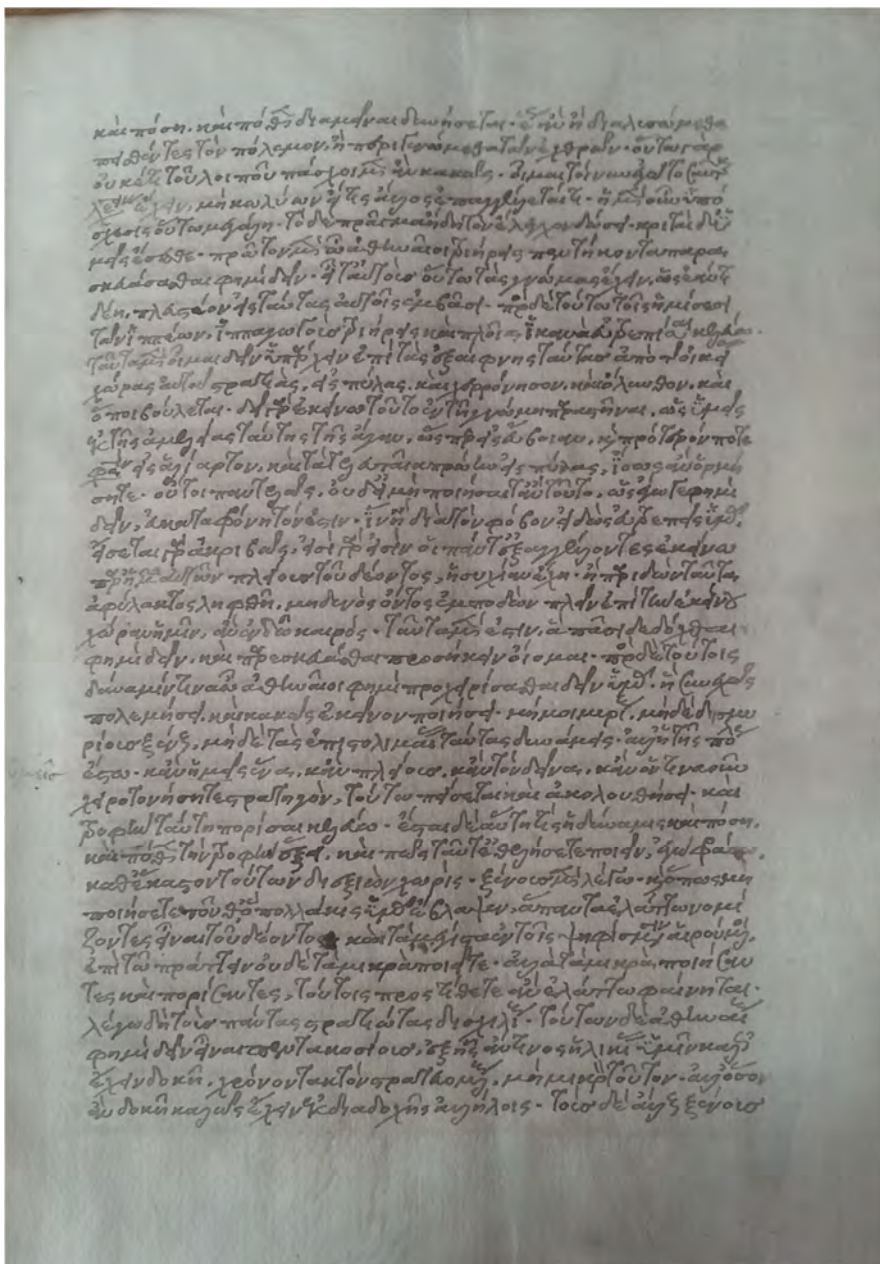 καὶ πόση, καὶ πόθεν διαμεῖναι δυνήσεται· ἕως ἂν ἢ διαλυσώμεθα
πεισθέντες τὸν πόλεμον, ἢ περιγενώμεθα τῶν ἐχθρῶν· οὕτω γὰρ
οὐκέτι τοῦ λοιποῦ πάσχοιμεν ἂν κακῶς· οἶμαι τοίνυν ἐγὼ ταῦτα
λέγειν ἔχειν, μὴ κωλύων εἴ τις ἄλλος ἐπαγγέλλεταί τι· ἡ μὲν οὖν ὑπό
σχεσις οὕτω μεγάλη· τὸ δὲ πρᾶγμα ἤδη τὸν ἔλεγχον δώσει· κριταὶ δ' ὑ
μεῖς ἔσεσθε· πρῶτον μὲν ὦ ἀθηναῖοι τριήρεις πεντήκοντα παρα
σκευάσασθαι φημὶ δεῖν· εἶτ' αὐτοὺς οὕτω τὰς γνώμας ἔχειν, ὡς ἐάν τι
δέη, πλευστέον εἰς ταύτας αὐτοῖς ἐμβᾶσι· πρὸς δὲ τούτοις τοῖς ἡμίσεσι
τῶν ἱππέων, ἱππαγωγοὺς τριήρεις καὶ πλοῖα ἱκανὰ εὐτρεπίσαι κελεύω·
ταῦτα μὲν οἶμαι δεῖν ὑπάρχειν ἐπὶ τὰς ἐξαίφνης ταύτας ἀπὸ τῆς οἰκείας
χώρας αὐτοῦ στρατείας, εἰς πύλας, καὶ χερρόνησον, καὶ ὄλυνθον, καὶ
ὅποι βούλεται· δεῖ γὰρ ἐκείνῳ τοῦτο ἐν τῇ γνώμῃ παραστῆναι, ὡς ὑμεῖς
ἐκ τῆς ἀμελείας ταύτης τῆς ἄγαν, ὥσπερ εἰς εὔβοιαν, καὶ πρότερόν ποτέ
φασιν εἰς ἁλίαρτον, καὶ τὰ τελευταῖα πρώην εἰς πύλας, ἴσως ἂν ὁρμή
σητε· οὔτοι παντελῶς, οὐδ' εἰ μὴ ποιήσαιτ' ἂν τοῦτο, ὡς ἔγωγέ φημι
δεῖν, εὐκαταφρόνητόν ἐστιν· ἵν' ἢ διὰ τὸν φόβον εἰδὼς εὐτρεπεῖς ὑμᾶς,
εἴσεται γὰρ ἀκριβῶς, εἰσὶ γὰρ εἰσὶν οἱ πάντ' ἐξαγγέλλοντες ἐκείνῳ
παρ' ἡμῶν αὐτῶν πλείους τοῦ δέοντος, ἡσυχίαν ἔχῃ· ἢ παριδὼν ταῦτα,
ἀφύλακτος ληφθῇ, μηδενὸς ὄντος ἐμποδὼν πλεῖν ἐπὶ τὴν ἐκείνου
χώραν ἡμῖν, ἂν ἐνδῷ καιρός· ταῦτα μέν ἐστιν, ἃ πᾶσι δεδόχθαι
φημὶ δεῖν, καὶ παρεσκευάσθαι προσήκειν οἴομαι· πρὸ δὲ τούτοις
δύναμίν τινα ὦ ἀθηναῖοι φημὶ προχειρίσασθαι δεῖν ὑμᾶς, ἣ συνεχῶς
πολεμήσει, καὶ κακῶς ἐκεῖνον ποιήσει· μή μοι μυρίους, μηδὲ δισμυ
ρίους ξένους, μηδὲ τὰς ἐπιστολιμαίους ταύτας δυνάμεις· ἀλλ' ἣ τῆς πόλεως
ἔσται· κἂν ὑμεῖς ἕνα, κἂν πλείους, κἂν τὸν δεῖνα, κἂν ὁντινοῦν
χειροτονήσητε στρατηγόν, τούτῳ πείσεται καὶ ἀκολουθήσει· καὶ
τροφὴν ταύτῃ πορίσαι κελεύω· ἔσται δὲ αὕτη τίς ἡ δύναμις καὶ πόση,
καὶ πόθεν τὴν τροφὴν ἕξει, καὶ πῶς ταῦτ' ἐθελήσετε ποιεῖν, ἐγὼ φράσω,
καθ' ἕκαστον τούτων διεξιὼν χωρίς· ξένους μὲν λέγω· καὶ ὅπως μὴ
ποιήσετε τοῦθ' ὃ πολλάκις ὑμᾶς ἔβλαψεν, ἅπαντα ἐλάττω νομί
ζοντες εἶναι τοῦ δέοντος καὶ τὰ μέγιστα ἐν τοῖς ψηφίσμασιν αἱρούμενοι,
ἐπὶ τῷ πράττειν οὐδὲ τὰ μικρὰ ποιεῖτε· ἀλλὰ τὰ μικρὰ ποιήσαν
τες καὶ πορίσαντες, τούτοις προστίθετε ἂν ἐλάττω φαίνηται·
λέγω δὴ τοὺς πάντας στρατιώτας δισχιλίους· τούτων δὲ ἀθηναίους
φημὶ δεῖν εἶναι πεντακοσίους, ἐξ ἧς ἄν τινος ἡλικίας ὑμῖν καλῶς
ἔχειν δοκῇ, χρόνον τακτὸν στρατευομένους, μὴ μικρὸν τοῦτον· ἀλλ' ὅσον
ἂν δοκῇ καλῶς ἔχειν ἐκ διαδοχῆς ἀλλήλοις· τοὺς δὲ ἄλλους ξένους